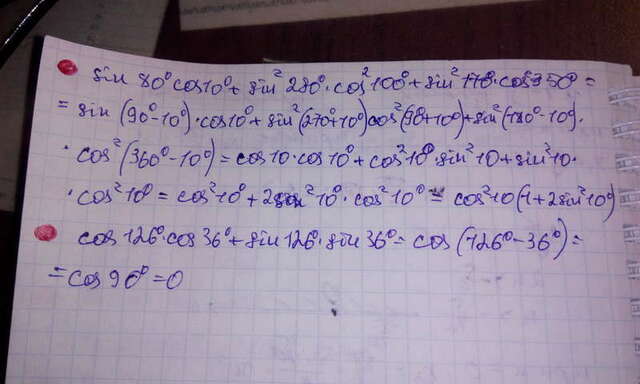 sin 80° cos10° + sin² 280° · cos² 100° + sin² 170° · cos² 350° =
= sin (90° - 10°) · cos10° + sin² (270° + 10°) cos² (90° + 10°) + sin² (180° - 10°) ·
· cos² (360° - 10°) = cos10 · cos10° + cos² 10° · sin² 10 + sin² 10 ·
· cos² 10° = cos² 10° + 2 sin² 10° · cos² 10° = cos² 10 (1 + 2sin² 10°)
cos 126° · cos 36° + sin 126° · sin 36° = cos (126° - 36°) =
= cos 90° = 0